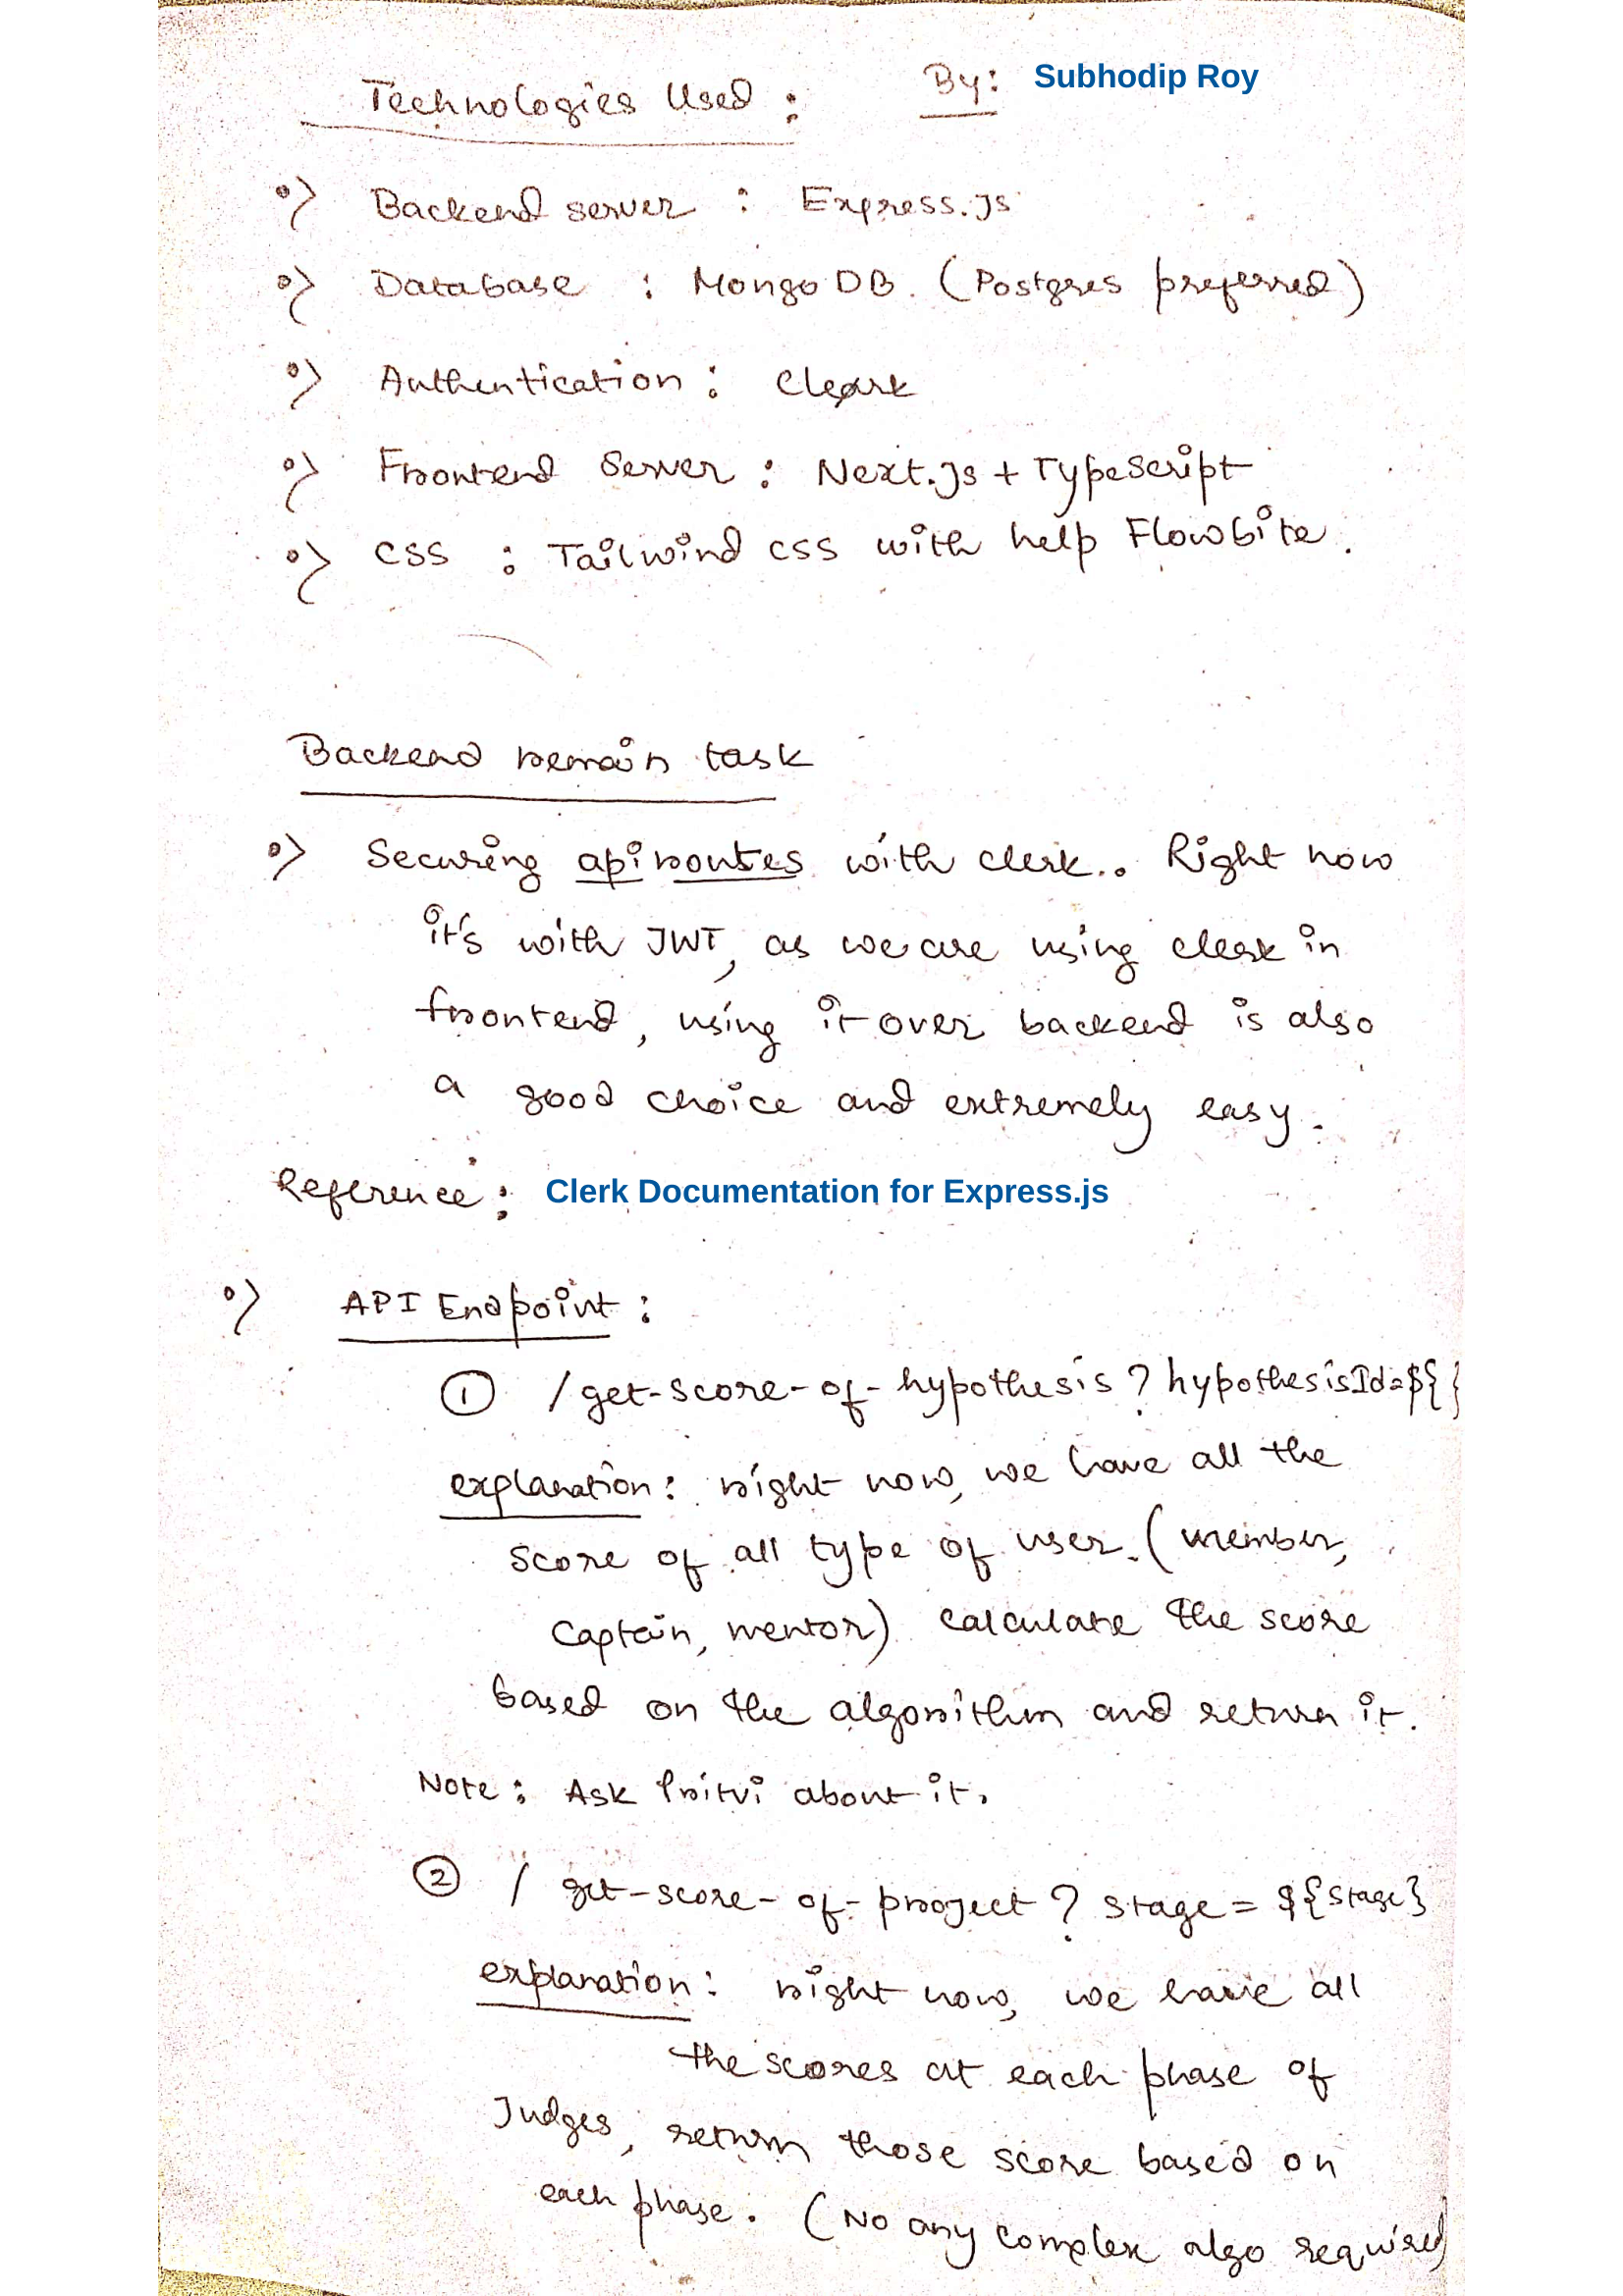 Technologies Used : By: Subhodip Roy
Backend server : Express.js
Database : MongoDB. (Postgres preferred)
Authentication : Clerk
Frontend Server : Next.js + TypeScript
CSS : Tailwind CSS with help Flowbite.
Backend remain task
Securing api routes with clerk.. Right now
it's with JWT, as we are using clerk in
frontend, using it over backend is also
a good choice and extremely easy.
Reference : Clerk Documentation for Express.js
API Endpoint :
① /get-score-of-hypothesis?hypothesisId=${}
explanation : right now, we have all the
score of all type of user. (member,
Captain, mentor) calculate the score
based on the algorithm and return it.
Note : Ask Pritvi about it.
② / get-score-of-project ? stage = ${stage}
explanation : right now, we have all
the scores at each phase of
Judges, return those score based on
each phase. (No any complex algo required)